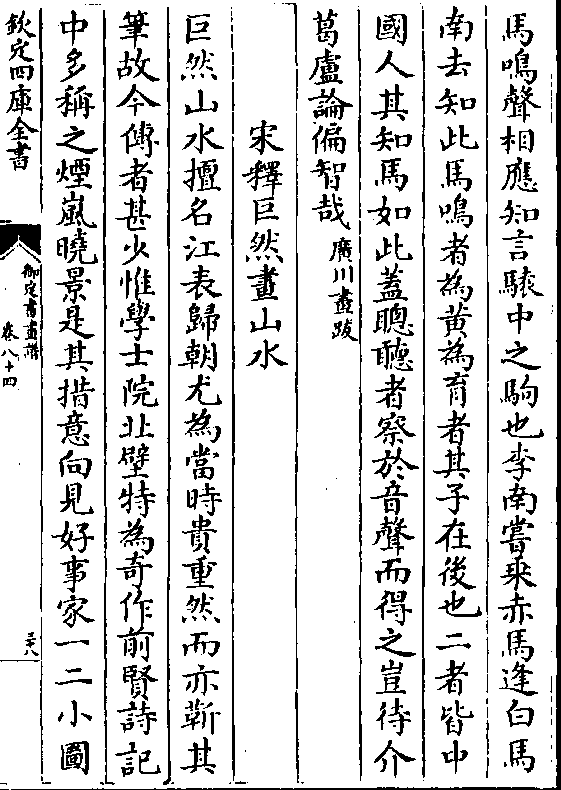 馬鳴聲相應知言騲中之駒也李南嘗乘赤馬逢白馬
南去知此馬鳴者為黄為盲者其子在後也二者皆中
國人其知馬如此蓋聰聽者察於音聲而得之豈待介
葛廬論偏智哉廣川畫跋
宋釋巨然畫山水
巨然山水擅名江表歸朝尤為當時貴重然而亦靳其
筆故今傳者甚少惟學士院北壁特為奇作前賢詩記
中多稱之煙嵐曉景是其措意向見好事家一二小圖
欽定四庫全書
御定書畫譜
卷八十四
三十八